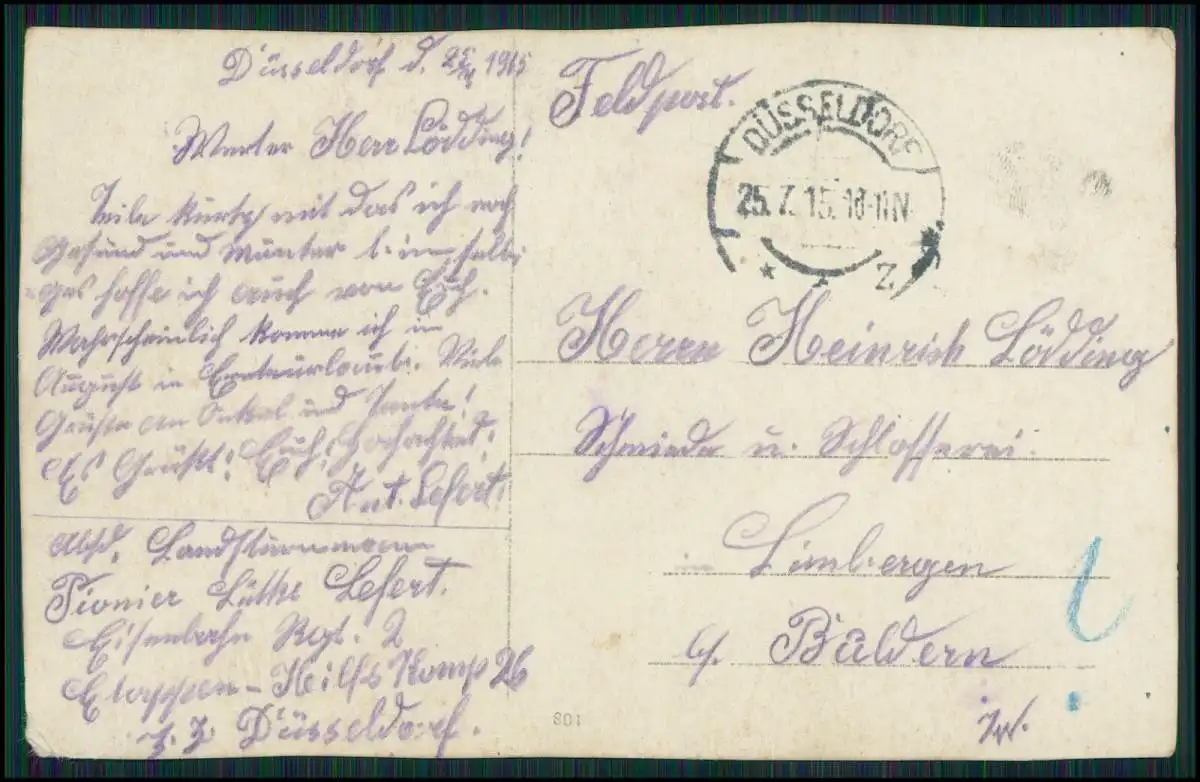 Düsseldorf d. 25/7 1915
Werter Herr Lödding!
Teile kurtz mit das ich noch
Gesund und Munter bin selbi-
ges hoffe ich auch von Euch.
Wahrscheinlich komme ich im
August in Ernteurlaub. Viele
Grüße an Onkel und Tante!
Es Grüßt Euch Hochachtend.
Ant. Lefert.
Absd. Landsturmmann
Pionier Lütke Lefert.
Eisenbahn Rgt. 2
Etappen-Hilfs Komp 26
z. Z. Düsseldorf.
Feldpost.
DÜSSELDORF
25.7.15. 10-11N.
* 1 z.
Herrn Heinrich Lödding
Schmiede u. Schlosserei.
in Limbergen
b/. Buldern
i/W.
801